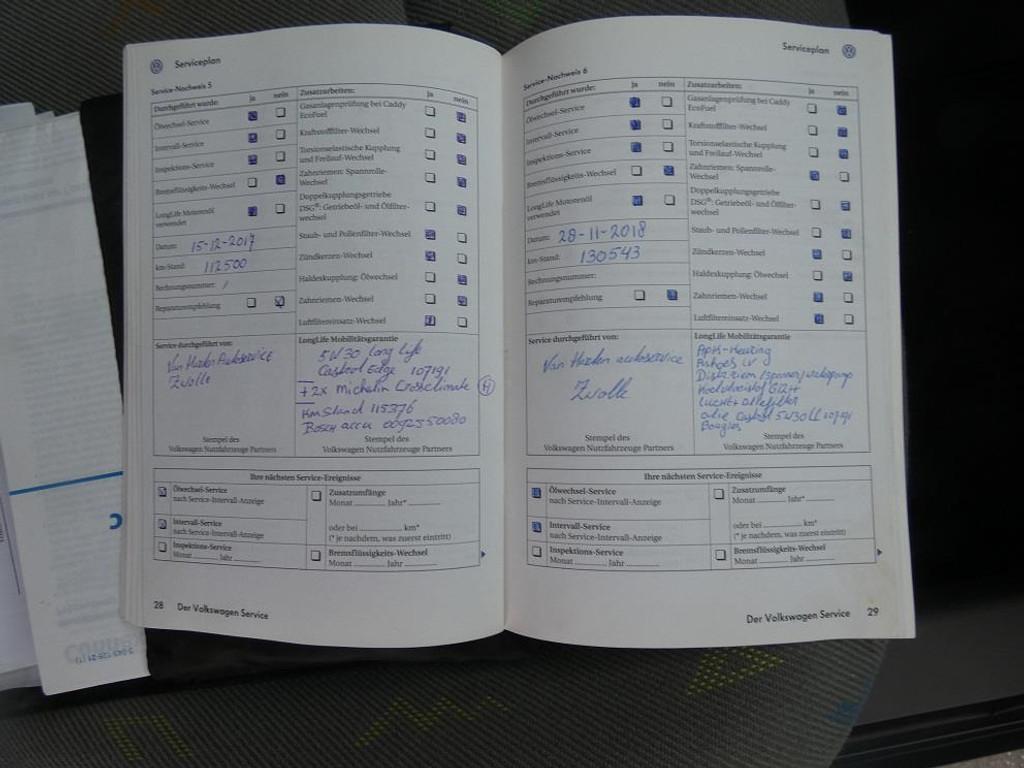 Serviceplan
Service-Nachweis 5
Durchgeführt wurde: ja nein
Ölwechsel-Service
Intervall-Service
Inspektions-Service
Bremsflüssigkeits-Wechsel
LongLife Motorenöl
verwendet
Datum: 15-12-2017
km-Stand: 112500
Rechnungsnummer: /
Reparaturempfehlung
Zusatzarbeiten: ja nein
Gasanlagenprüfung bei Caddy
EcoFuel
Kraftstofffilter-Wechsel
Torsionselastische Kupplung
und Freilauf-Wechsel
Zahnriemen: Spannrolle-
Wechsel
Doppelkupplungsgetriebe
DSG®: Getriebeöl- und Ölfilter-
wechsel
Staub- und Pollenfilter-Wechsel
Zündkerzen-Wechsel
Haldexkupplung: Ölwechsel
Zahnriemen-Wechsel
Luftfiltereinsatz-Wechsel
Service durchgeführt von:
Van Huzen Autoservice
Zwolle
Stempel des
Volkswagen Nutzfahrzeuge Partners
LongLife Mobilitätsgarantie
5W30 long life
Castrol Edge 107191
+2x Michelin Crossclimate
Km Stand 115376
Bosch accu 0092S50080
Stempel des
Volkswagen Nutzfahrzeuge Partners
Ihre nächsten Service-Ereignisse
Ölwechsel-Service
nach Service-Intervall-Anzeige
Intervall-Service
nach Service-Intervall-Anzeige
Inspektions-Service
Monat Jahr
Zusatzumfänge
Monat Jahr*
oder bei km*
(* je nachdem, was zuerst eintritt)
Bremsflüssigkeits-Wechsel
Monat Jahr
28 Der Volkswagen Service
Serviceplan
Service-Nachweis 6
Durchgeführt wurde: ja nein
Ölwechsel-Service
Intervall-Service
Inspektions-Service
Bremsflüssigkeits-Wechsel
LongLife Motorenöl
verwendet
Datum: 28-11-2018
km-Stand: 130543
Rechnungsnummer:
Reparaturempfehlung
Zusatzarbeiten: ja nein
Gasanlagenprüfung bei Caddy
EcoFuel
Kraftstofffilter-Wechsel
Torsionselastische Kupplung
und Freilauf-Wechsel
Zahnriemen: Spannrolle-
Wechsel
Doppelkupplungsgetriebe
DSG®: Getriebeöl- und Ölfilter-
wechsel
Staub- und Pollenfilter-Wechsel
Zündkerzen-Wechsel
Haldexkupplung: Ölwechsel
Zahnriemen-Wechsel
Luftfiltereinsatz-Wechsel
Service durchgeführt von:
Van Huzen autoservice
Zwolle
Stempel des
Volkswagen Nutzfahrzeuge Partners
LongLife Mobilitätsgarantie
APK-Keuring
Distr.riem/spanner/waterpomp
Koelvloeistof G12++
Lucht+oliefilter
olie Castrol 5W30LL 107191
Bougies
Stempel des
Volkswagen Nutzfahrzeuge Partners
Ihre nächsten Service-Ereignisse
Ölwechsel-Service
nach Service-Intervall-Anzeige
Intervall-Service
nach Service-Intervall-Anzeige
Inspektions-Service
Monat Jahr
Zusatzumfänge
Monat Jahr*
oder bei km*
(* je nachdem, was zuerst eintritt)
Bremsflüssigkeits-Wechsel
Monat Jahr
Der Volkswagen Service 29